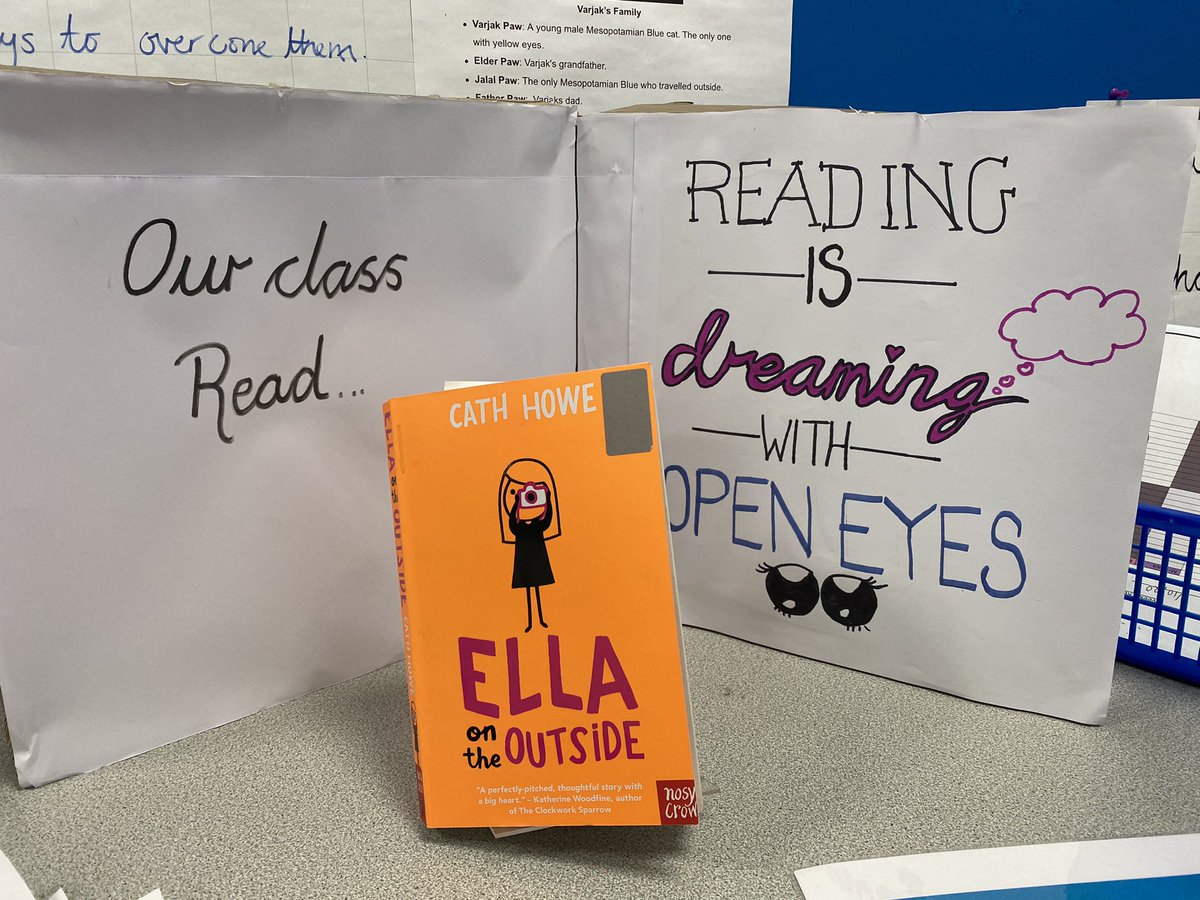 ys to overcome them.
Varjak's Family
Varjak Paw: A young male Mesopotamian Blue cat. The only one
with yellow eyes.
Elder Paw: Varjak's grandfather.
Jalal Paw: The only Mesopotamian Blue who travelled outside.
Father Paw: Varjaks dad.
Our class
Read...
READING
IS
dreaming
WITH
OPEN EYES
CATH HOWE
ELLA
on
the OUTSIDE
"A perfectly-pitched, thoughtful story with
a big heart." – Katherine Woodfine, author
of The Clockwork Sparrow
nosy
crow
ELLA on the OUTSIDE CATH HOWE